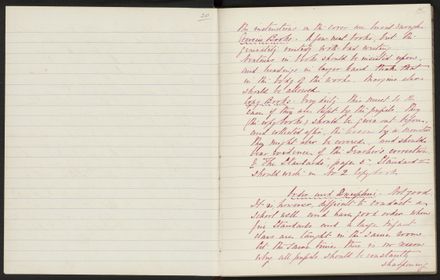 20
the instructions in the cover are
Exercise Books. A few neat books, but the
generality untidy with bad writing
Neatness in books should be insisted upon
and headings in larger hand than that
in the body of the work. Margins also
should be allowed.
Copy Books. Very dirty this must be the
case if they are kept by the pupils. They
(the copy books) should be given out before,
and collected after, the lesson by a monitor
They might also be covered, and should
bear evidence of the Teacher's correction
"The Standards" page 5. Standard
should write in No 2 Copy book.
Order and Discipline. Not good
It is, however, difficult to conduct a
school well and have good order when
five Standards and a large Infant
class are taught in the same room
At the same time there is no reason
why all pupils should be constantly
sharpening